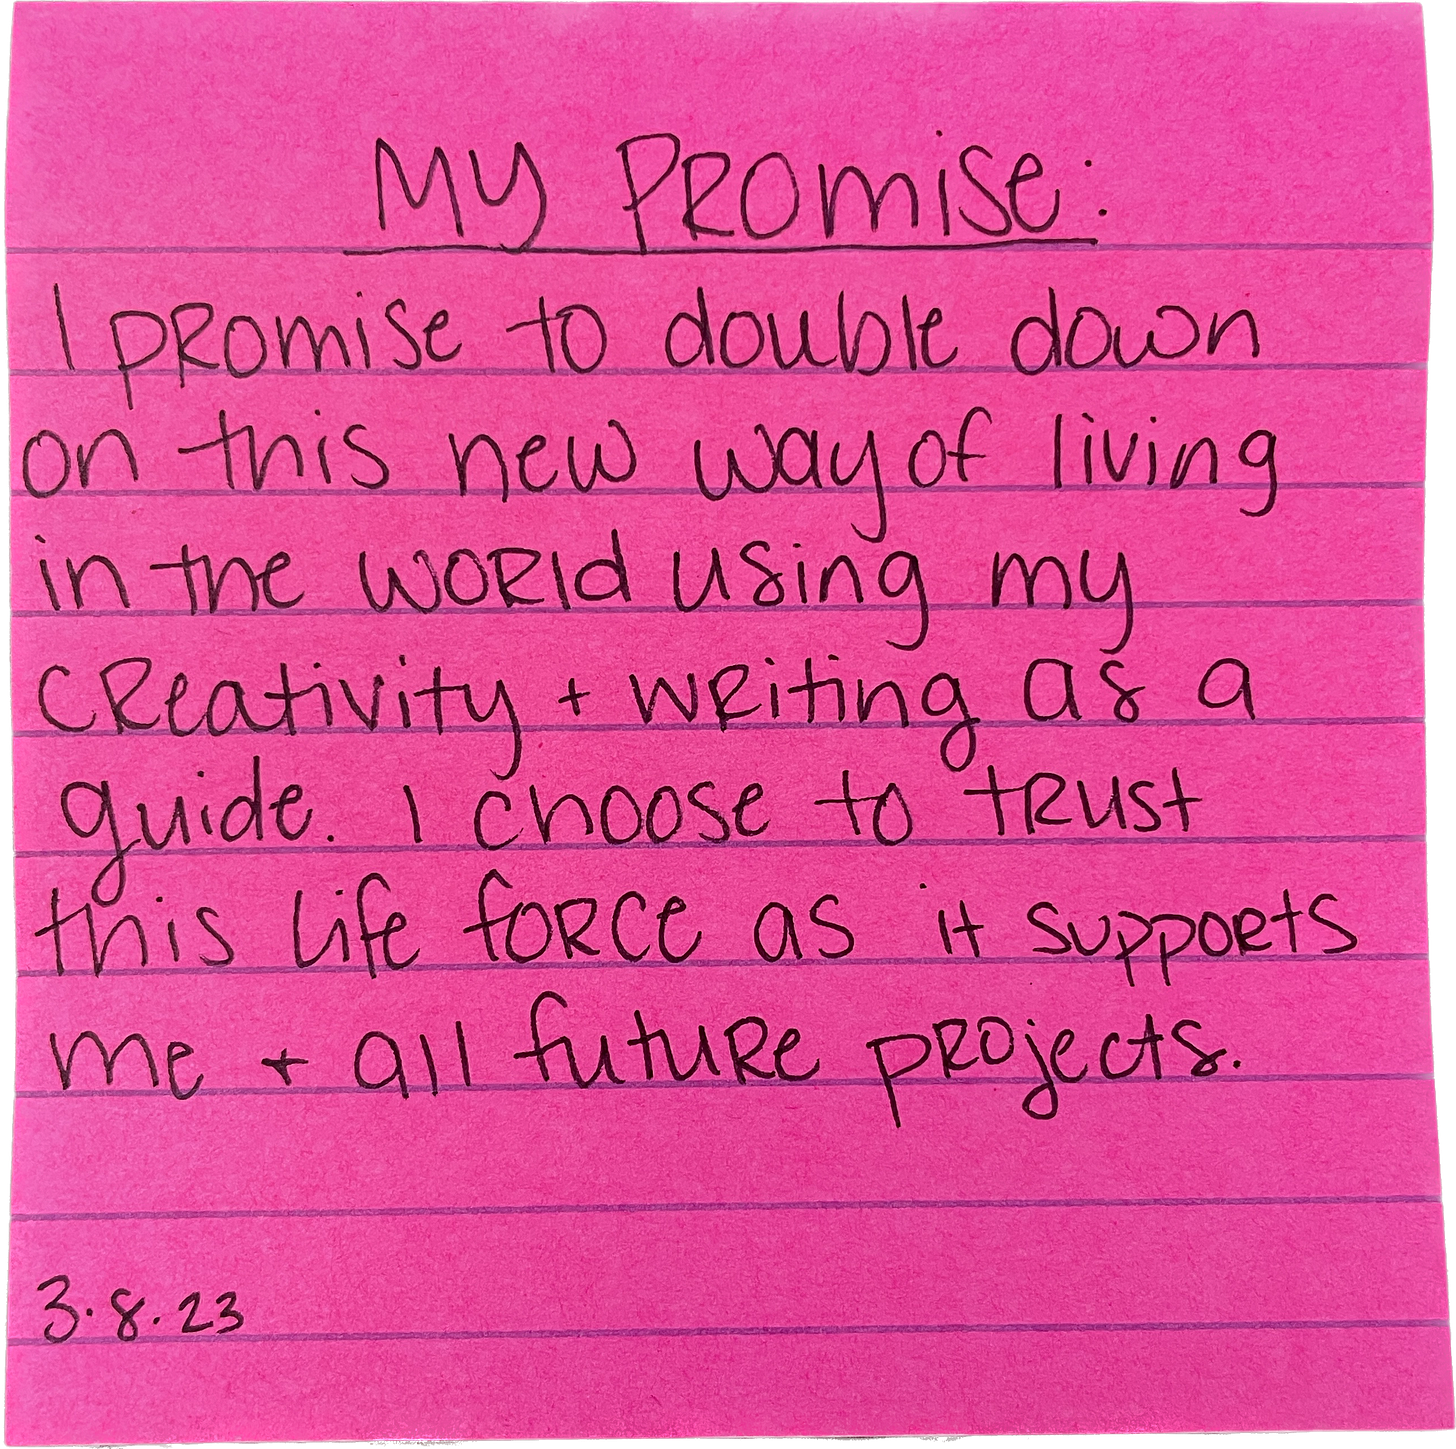 My Promise:
I promise to double down
on this new way of living
in the world using my
creativity + writing as a
guide. I choose to trust
this life force as it supports
me + all future projects.
3.8.23